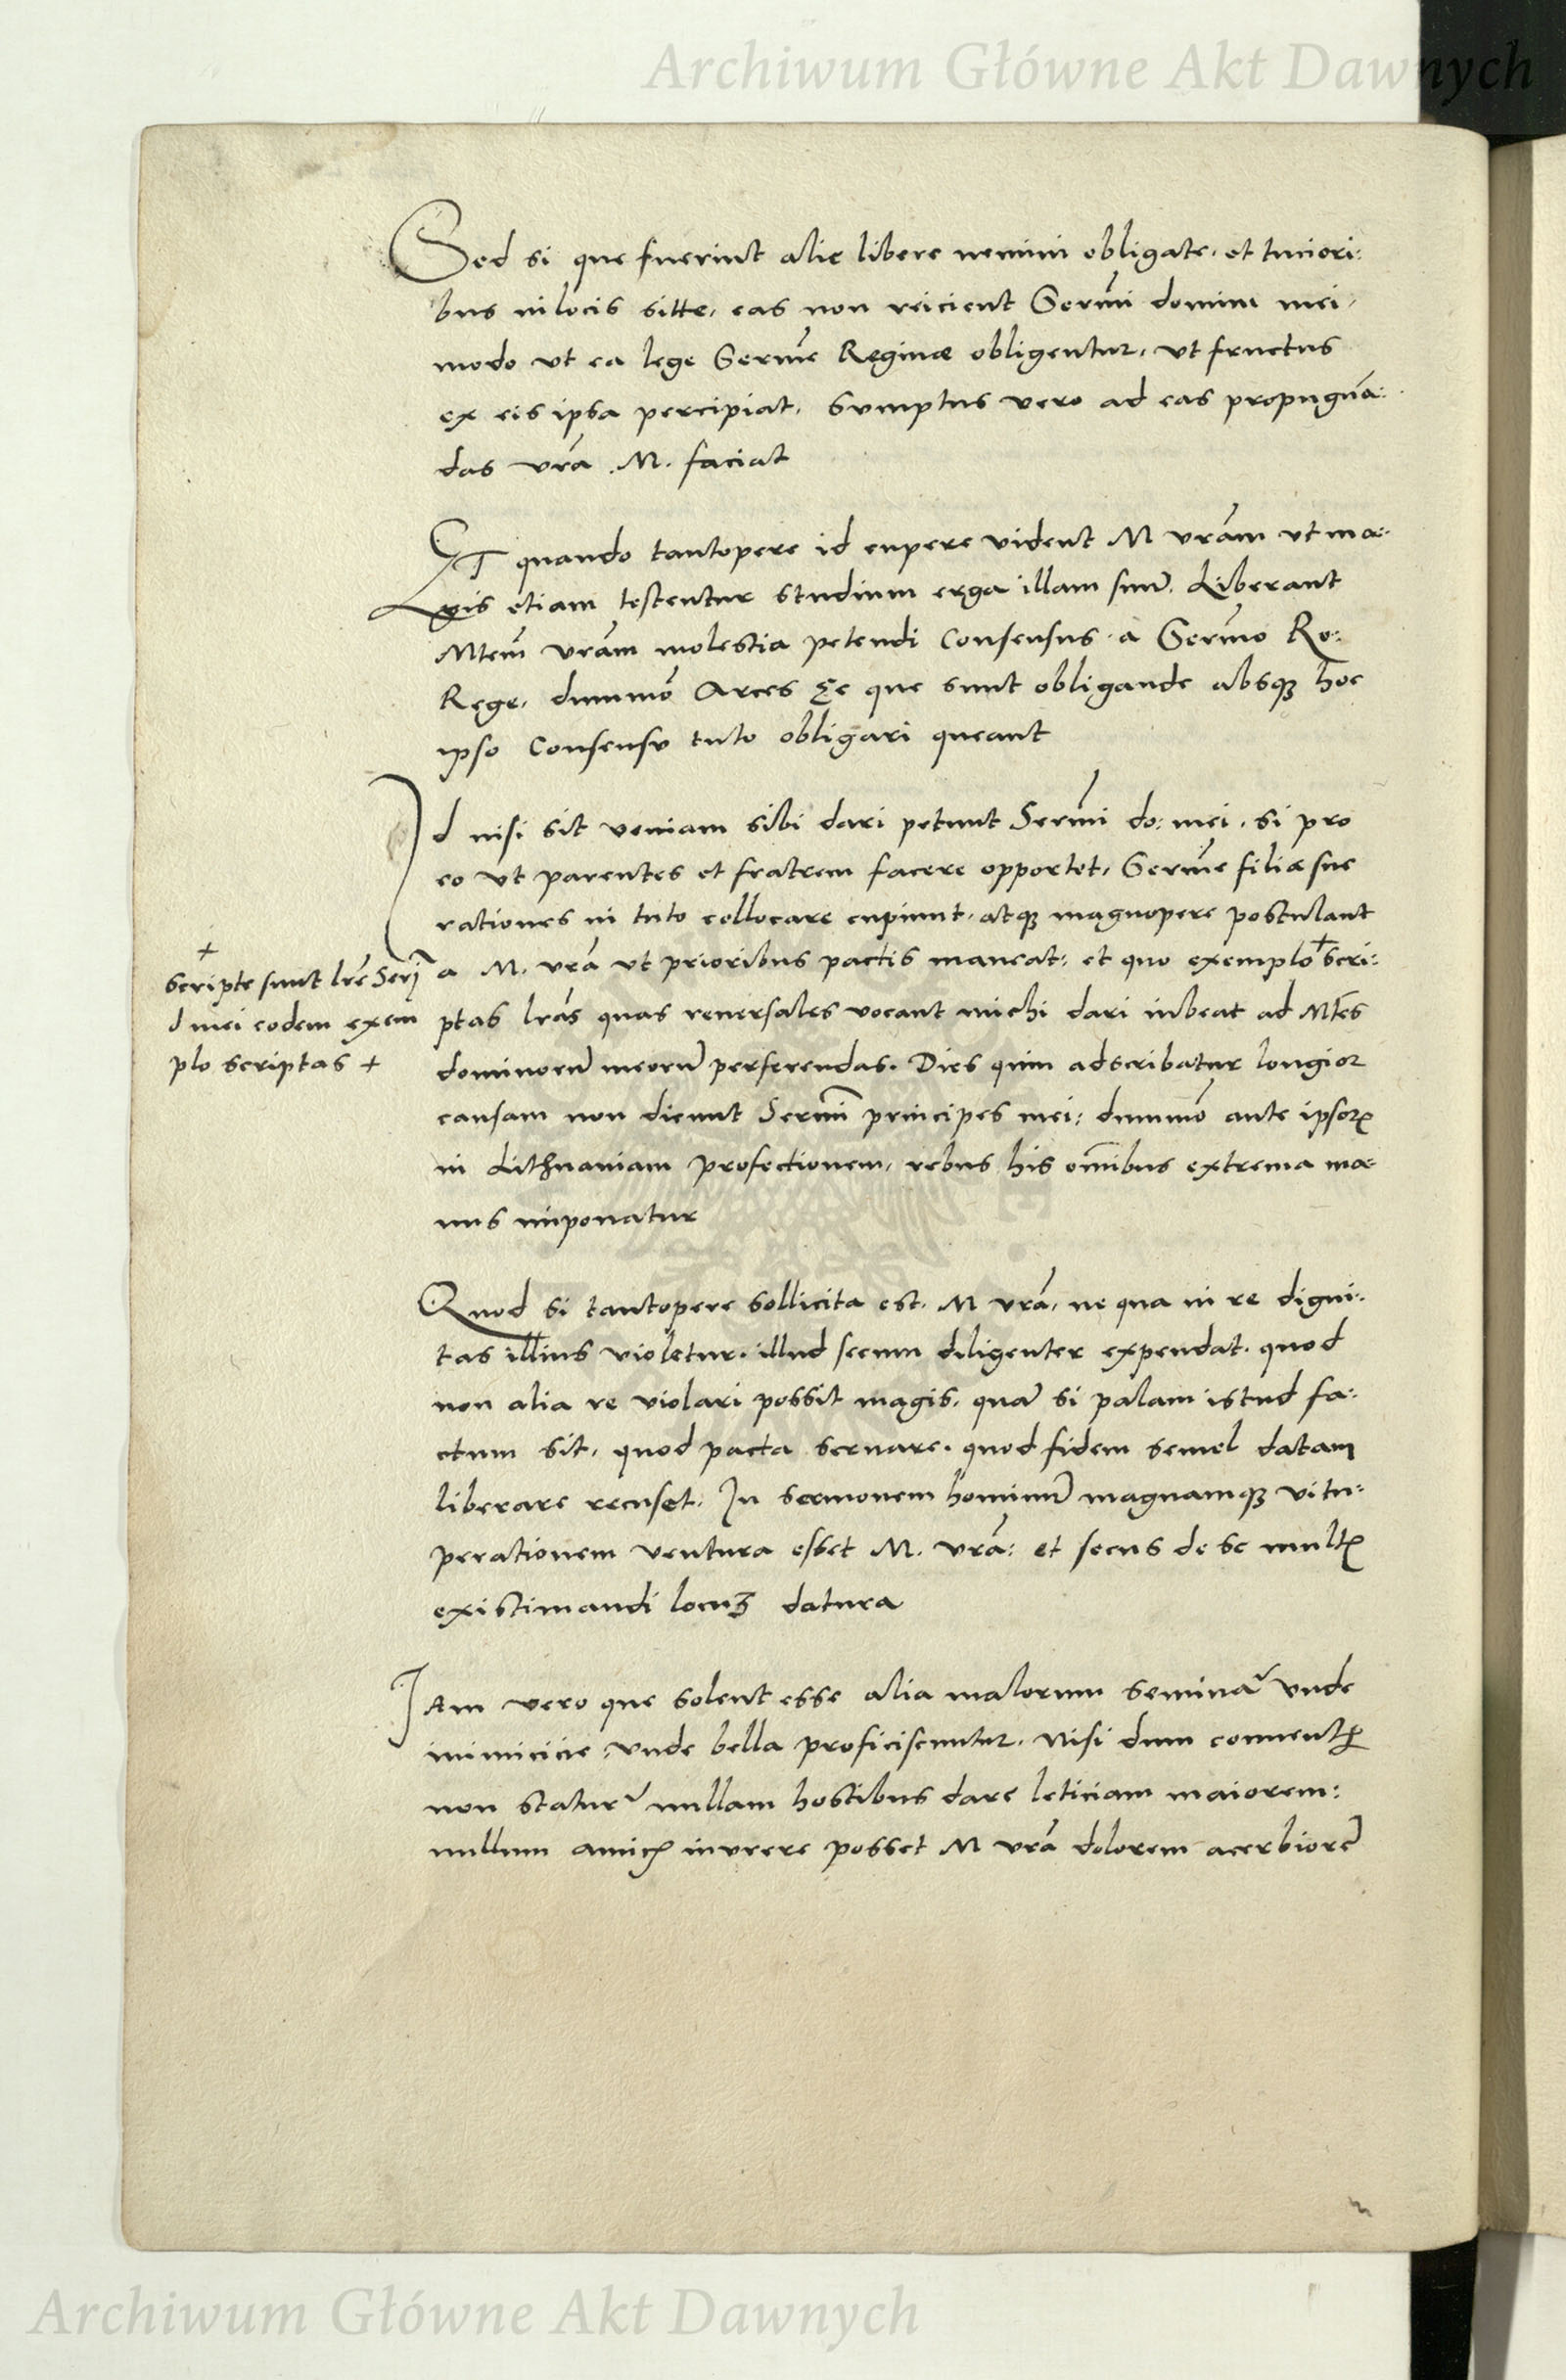 Archiwum Główne Akt Dawnych
Sed si que fuerint alie libere nemini obligate, et tutiori:
bus in locis sitte, eas non reicient Sermi domini mei,
modo ut ea lege Serme Reginæ obligentur, ut fructus
ex eis ipsa percipiat, sumptus vero ad eas propugnā:
das vrā .M. faciat
ET quando tantopere id cupere vident M vrām ut ma:
gis etiam testentur studium erga illam suū. Liberant
Mtem vrām molestia petendi Consensus a Sermo Ro:
Rege, dummō Arces ee que sunt obligande absqꝫ hoc
ipso Consensu tuto obligari queant
Id nisi sit veniam sibi dari petunt Sermi do: mei, si pro
eo ut parentes et fratrem facere opportet, Serme filiæ sue
rationes in tuto collocare cupiunt, atqꝫ magnopere postulant
a M. vrā ut prioribus pactis maneat: et quo exemplo + scri:
ptas lrās quas reuersales vocant michi dari iubeat ad Mtes
dominorū meorū perferendas. Dies quin adscribatur longior
causam non dicunt Sermi principes mei: dummō ante ipsorꝝ
in Lithuaniam profectionem, rebus his omībus extrema ma:
nus imponatur
+
scripte sunt lrē Serī
d mei eodem exem
plo scriptas +
Quod si tantopere sollicita est, M vrā, ne qua in re digni:
tas illius violetur, illud secum diligenter expendat, quod
non alia re violari possit magis, quā si palam istud fa:
ctum sit, quod pacta seruare, quod fidem semel datam
liberare recuset. In sermonem hominū magnamqꝫ vitu:
perationem ventura esset M. vrā: et secus de se multꝭ
existimandi locuꝫ datura
Iam vero que solent esse alia malorum semina? unde
inimicicie, unde bella proficiscuntur, nisi dum conuentꝭ
non statur? nullam hostibus dare leticiam maiorem:
nullum amicꝭ inurere posset M vrā dolorem acerbiorē
Archiwum Główne Akt Dawnych